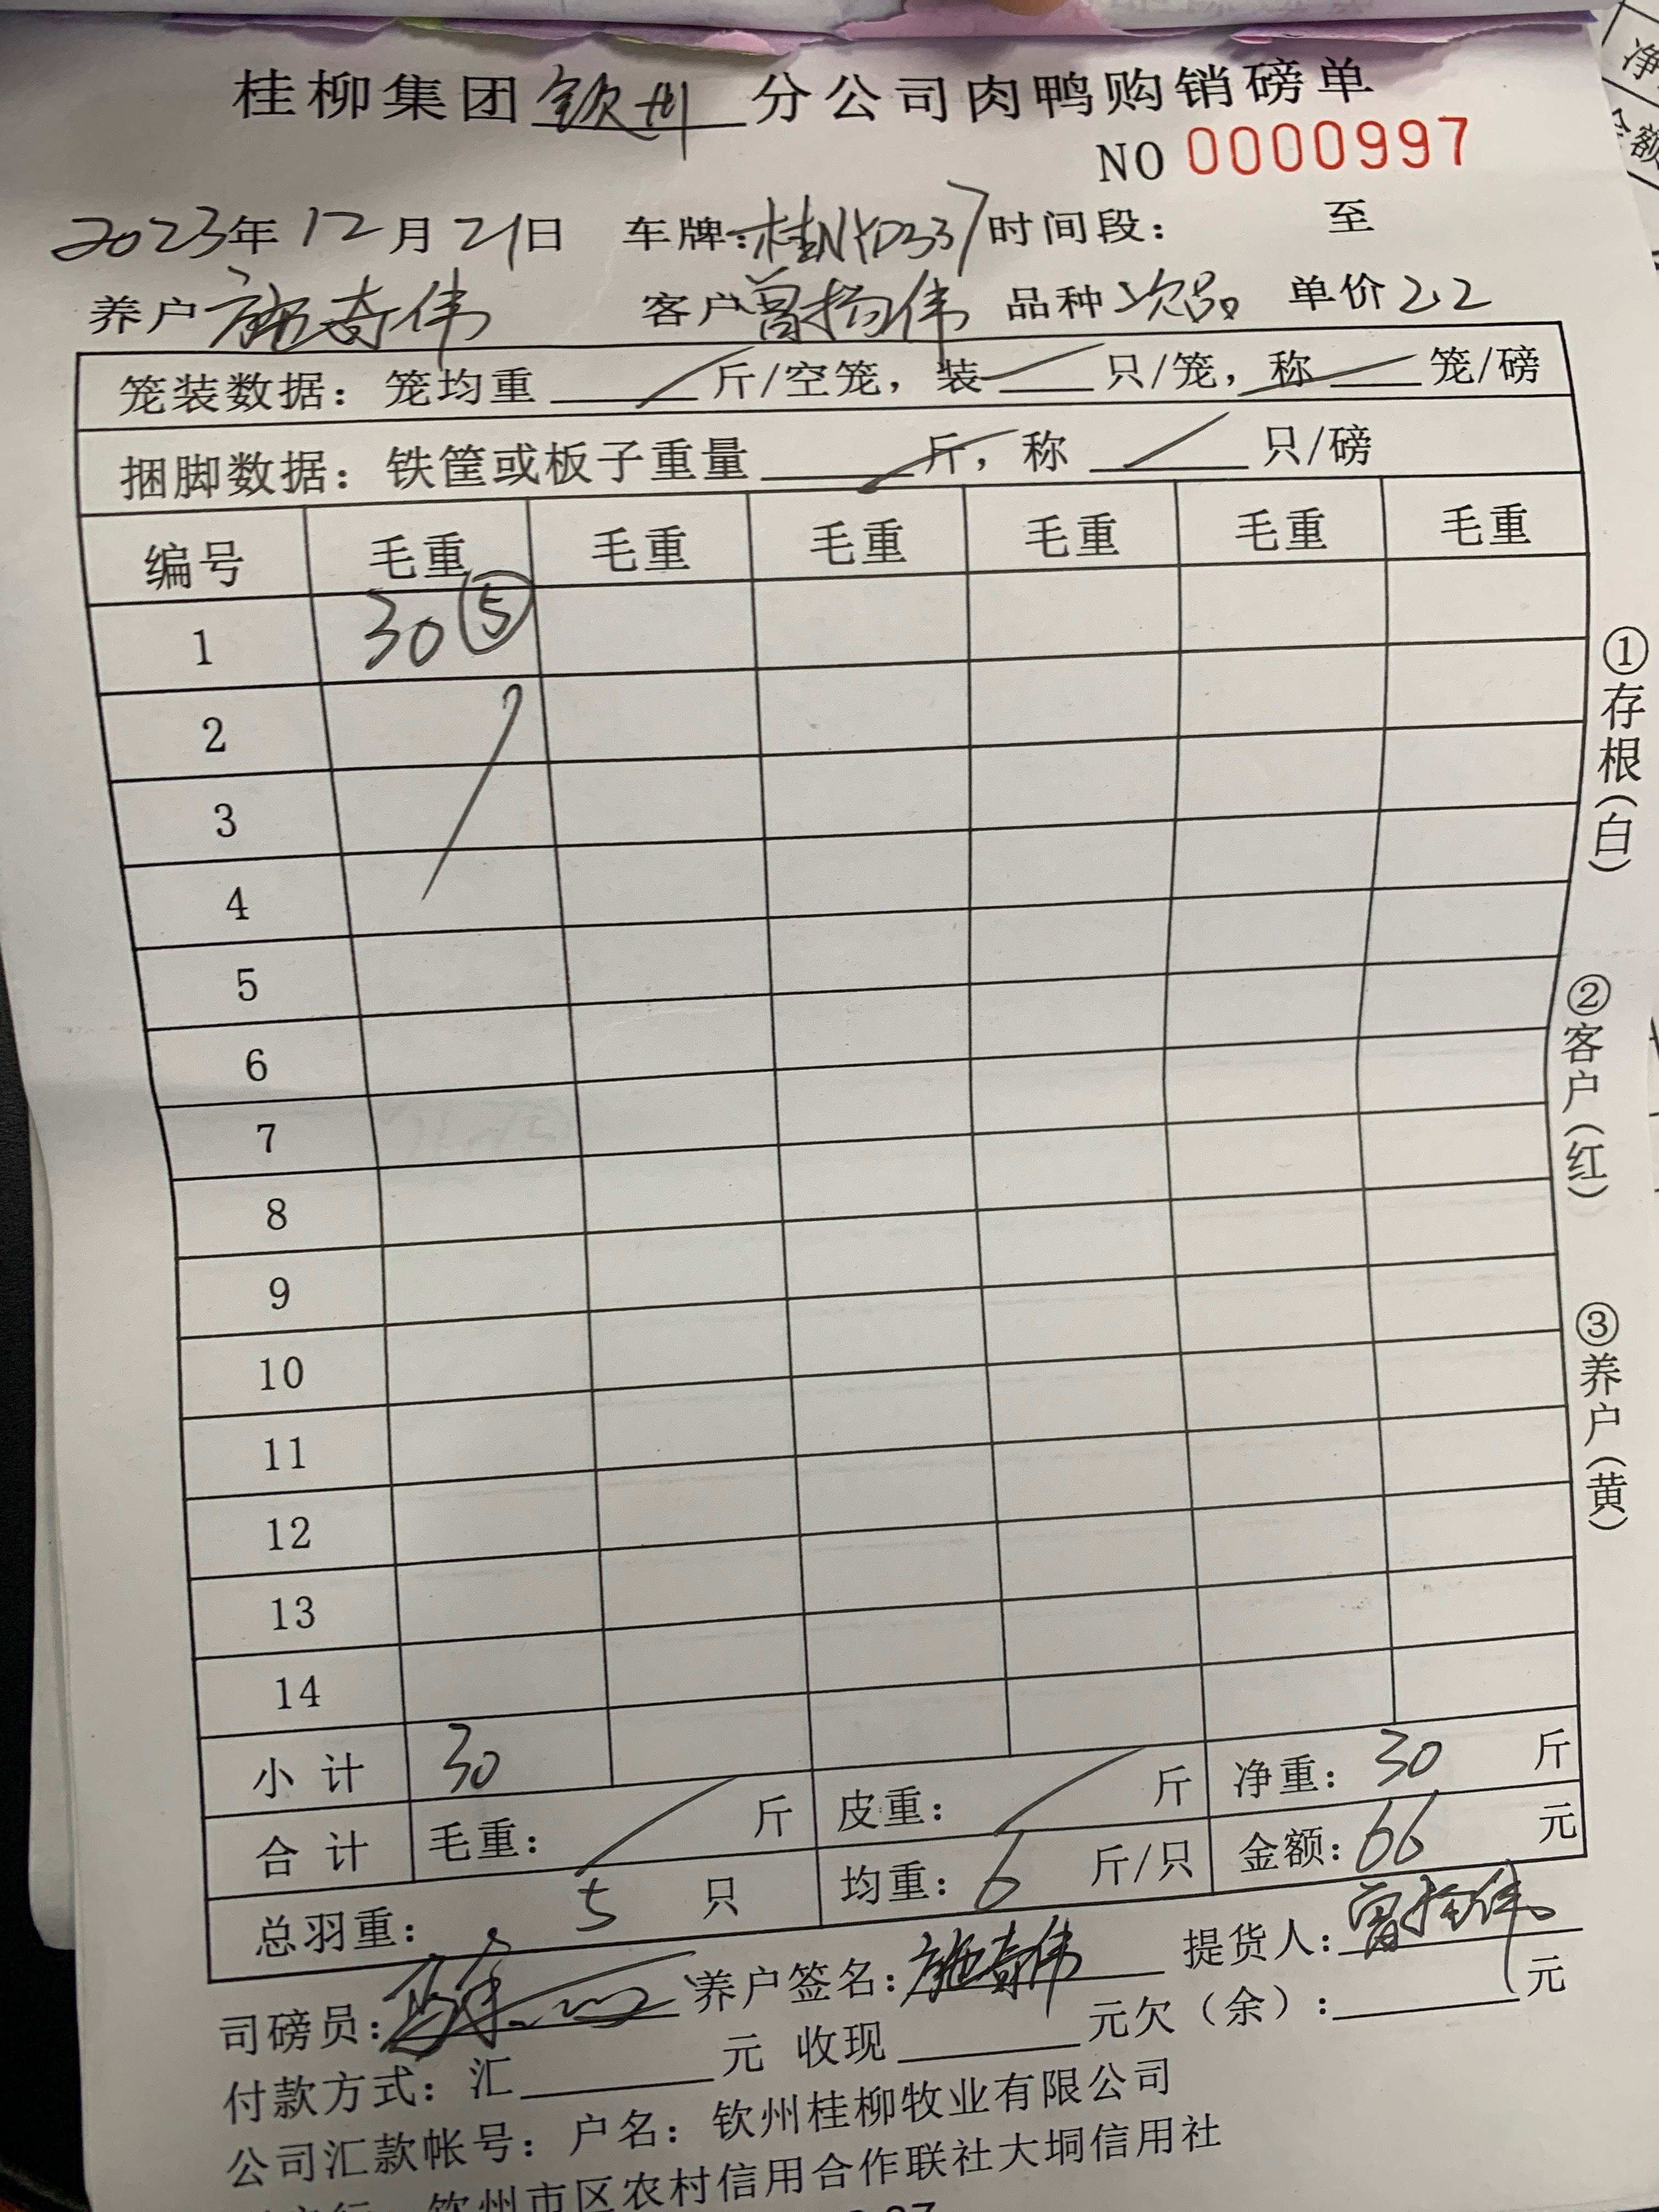 桂柳集团钦州分公司肉鸭购销磅单
NO 0000997
2023年12月21日 车牌:桂NYD337 时间段: 至
养户 施奇伟 客户 曾扬伟 品种 次品 单价 2.2
笼装数据: 笼均重 / 斤/空笼, 装 / 只/笼, 称 / 笼/磅
捆脚数据: 铁筐或板子重量 / 斤, 称 / 只/磅
编号 毛重 毛重 毛重 毛重 毛重 毛重
1 30 ⑤
2
3
4
5
6
7
8
9
10
11
12
13
14
小计 30
合计 毛重: / 斤 皮重: / 斤 净重: 30 斤
总羽重: 5 只 均重: 6 斤/只 金额: 66 元
司磅员: 养户签名: 施奇伟 提货人: 曾扬伟
付款方式: 汇 元 收现 元 欠(余): 元
公司汇款帐号: 户名: 钦州桂柳牧业有限公司
钦州市区农村信用合作联社大垌信用社
①存根(白)
②客户(红)
③养户(黄)
净
额